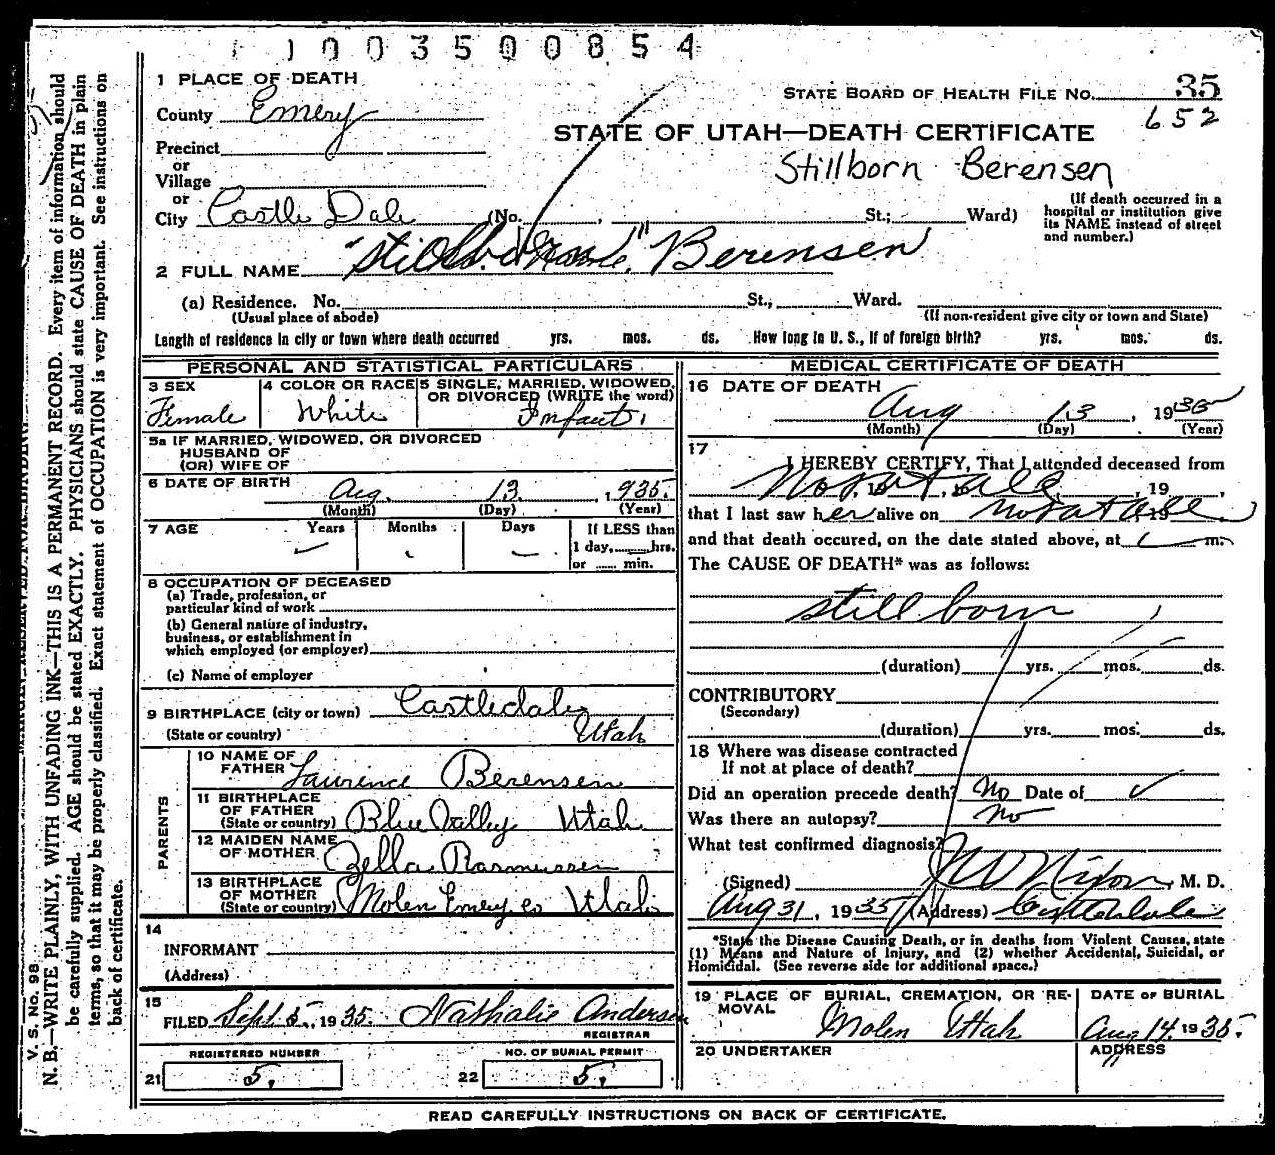 1003500854
1 PLACE OF DEATH
STATE BOARD OF HEALTH FILE NO. 35
652
County Emery
STATE OF UTAH—DEATH CERTIFICATE
Stillborn Berensen
Precinct
or
Village
or
City Castle Dale (No. , St.; Ward)
(If death occurred in a
hospital or institution give
its NAME instead of street
and number.)
2 FULL NAME "Stillborn" Berensen
(a) Residence. No. St., Ward.
(Usual place of abode) (If non-resident give city or town and State)
Length of residence in city or town where death occurred yrs. mos. ds. How long in U. S., if of foreign birth? yrs. mos. ds.
PERSONAL AND STATISTICAL PARTICULARS
3 SEX Female
4 COLOR OR RACE White
5 SINGLE, MARRIED, WIDOWED,
OR DIVORCED (WRITE the word)
Infant.
5a IF MARRIED, WIDOWED, OR DIVORCED
HUSBAND OF
(OR) WIFE OF
6 DATE OF BIRTH Aug. 13, 1935.
(Month) (Day) (Year)
7 AGE Years Months Days If LESS than
1 day, hrs.
or min.
8 OCCUPATION OF DECEASED
(a) Trade, profession, or
particular kind of work
(b) General nature of industry,
business, or establishment in
which employed (or employer)
(c) Name of employer
9 BIRTHPLACE (city or town) Castledale
(State or country) Utah
PARENTS
10 NAME OF
FATHER Laurence Berensen
11 BIRTHPLACE
OF FATHER
(State or country) Blue Valley Utah
12 MAIDEN NAME
OF MOTHER Zella Rasmussen
13 BIRTHPLACE
OF MOTHER
(State or country) Molen Emery Co Utah
14
INFORMANT
(Address)
15
FILED Sept 5, 1935. Nathalie Andersen
REGISTRAR
REGISTERED NUMBER
21 5.
NO. OF BURIAL PERMIT
22 5.
MEDICAL CERTIFICATE OF DEATH
16 DATE OF DEATH
Aug 13, 1935
(Month) (Day) (Year)
17
I HEREBY CERTIFY, That I attended deceased from
Not at all, 19 ,
that I last saw her alive on not at all, 19
and that death occured, on the date stated above, at m.
The CAUSE OF DEATH* was as follows:
still born
(duration) yrs. mos. ds.
CONTRIBUTORY
(Secondary)
(duration) yrs. mos. ds.
18 Where was disease contracted
If not at place of death?
Did an operation precede death? No Date of
Was there an autopsy? No
What test confirmed diagnosis?
(Signed) Nixon, M. D.
Aug 31, 1935 (Address) Castledale
*State the Disease Causing Death, or in deaths from Violent Causes, state
(1) Means and Nature of Injury, and (2) whether Accidental, Suicidal, or
Homicidal. (See reverse side for additional space.)
19 PLACE OF BURIAL, CREMATION, OR RE-
MOVAL
Molen Utah
DATE OF BURIAL
Aug 14, 1935.
20 UNDERTAKER
ADDRESS
READ CAREFULLY INSTRUCTIONS ON BACK OF CERTIFICATE.
V. S. No. 98
N. B.—WRITE PLAINLY, WITH UNFADING INK—THIS IS A PERMANENT RECORD. Every item of information should
be carefully supplied. AGE should be stated EXACTLY. PHYSICIANS should state CAUSE OF DEATH in plain
terms, so that it may be properly classified. Exact statement of OCCUPATION is very important. See instructions on
back of certificate.